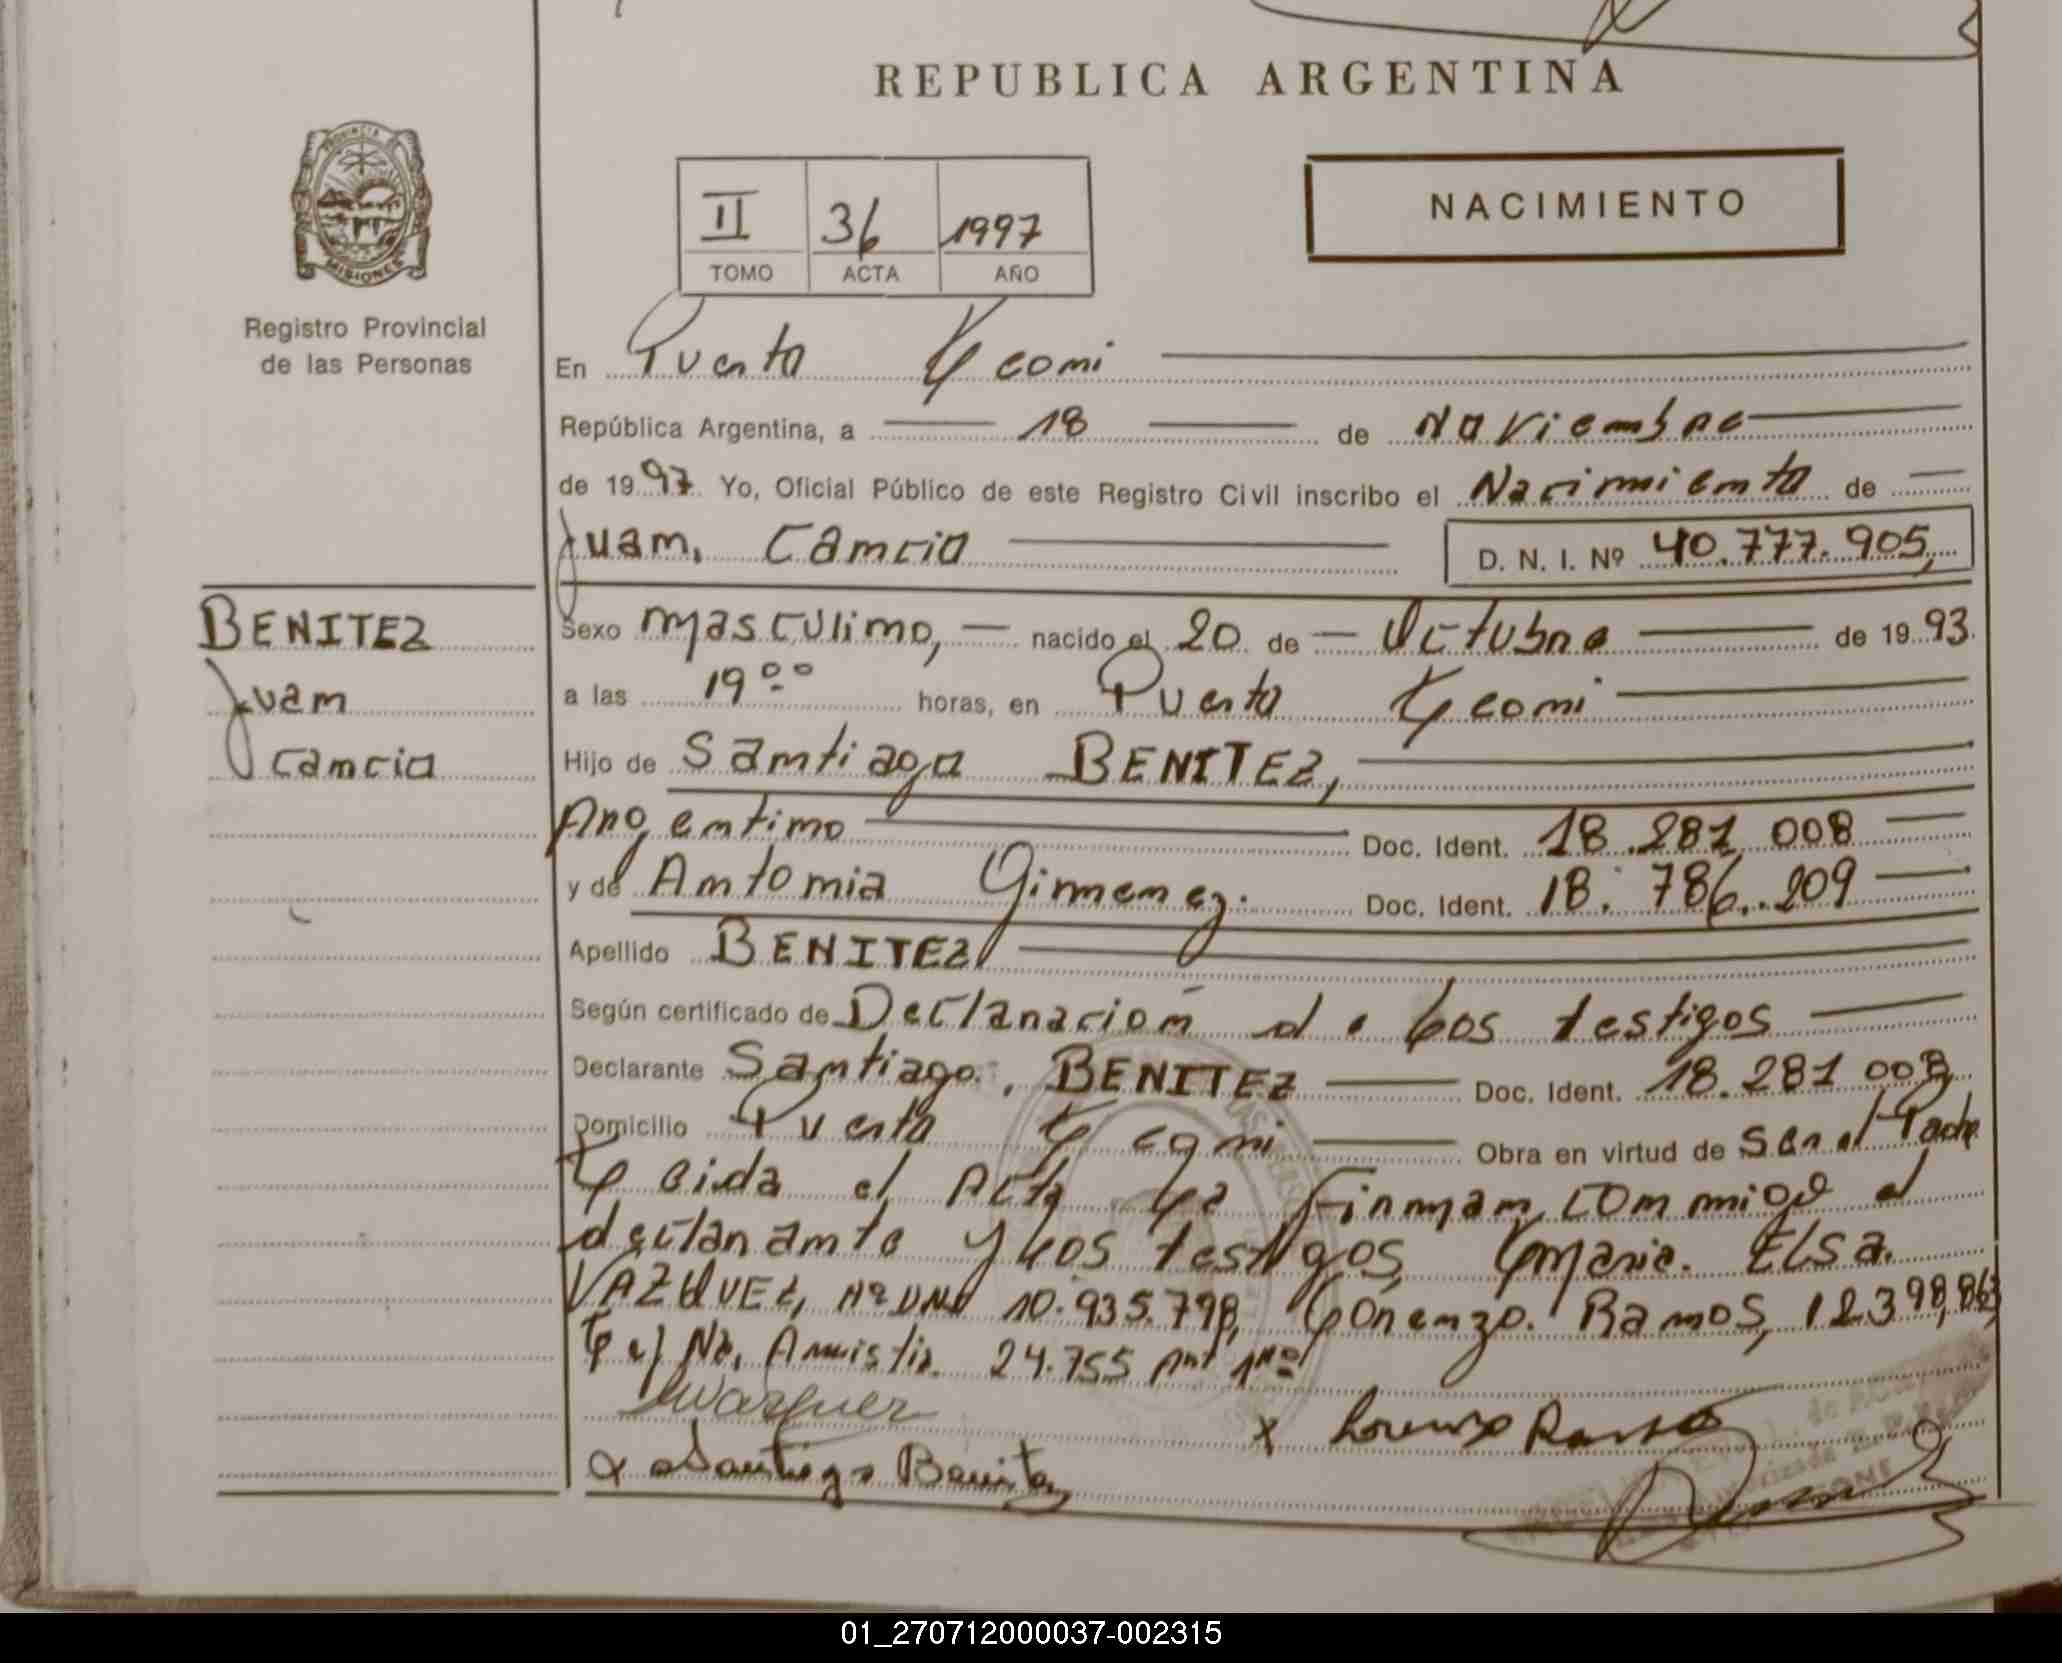 REPUBLICA ARGENTINA
PROVINCIA
MISIONES
Registro Provincial
de las Personas
II 36 1997
TOMO ACTA AÑO
NACIMIENTO
En Puerto Leoni
República Argentina, a 18 de Noviembre
de 1997 Yo, Oficial Público de este Registro Civil inscribo el Nacimiento de
Juan, Cancio D. N. I. Nº 40.777.905,
BENITEZ
Juan
Cancio
Sexo Masculino, nacido el 20 de Octubre de 1993.
a las 19 00 horas, en Puerto Leoni
Hijo de Santiago BENITEZ,
Argentino Doc. Ident. 18.281 008
y de Antonia Gimenez. Doc. Ident. 18.786.209
Apellido BENITEZ
Según certificado de Declaración de los testigos
Declarante Santiago, BENITEZ Doc. Ident. 18.281 008
Domicilio Puerto Leoni Obra en virtud de Ser el Padre
Leida el Acta La Firman conmigo el
declarante y los testigos Maria. ELSA.
VAZQUEZ, Nº DNI 10.935.798, Lorenzo. Ramos, 12.398,863
Ley No, Amnistia. 24.755 Art 1ro
x Lorenzo Ramos
x Santiago Benitez
01_270712000037-002315